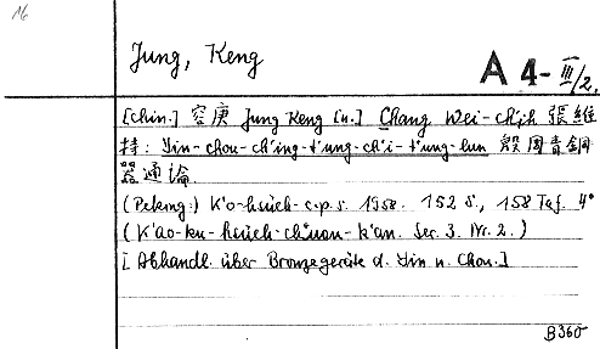 16
Jung, Keng
A 4-III/2.
[chin.] 容庚 Jung Keng [u.] Chang Wei-ch'ih 張維
持: Yin-chou-ch'ing-t'ung-ch'i-t'ung-lun 殷周青銅
器通論.
(Peking:) K'o-hsüeh-c.p.s. 1958. 152 S., 158 Taf. 4°
(K'ao-ku-hsüeh-chuan-k'an. Ser. 3. Nr. 2.)
[Abhandl. über Bronzegeräte d. Yin u. Chou.]
B360